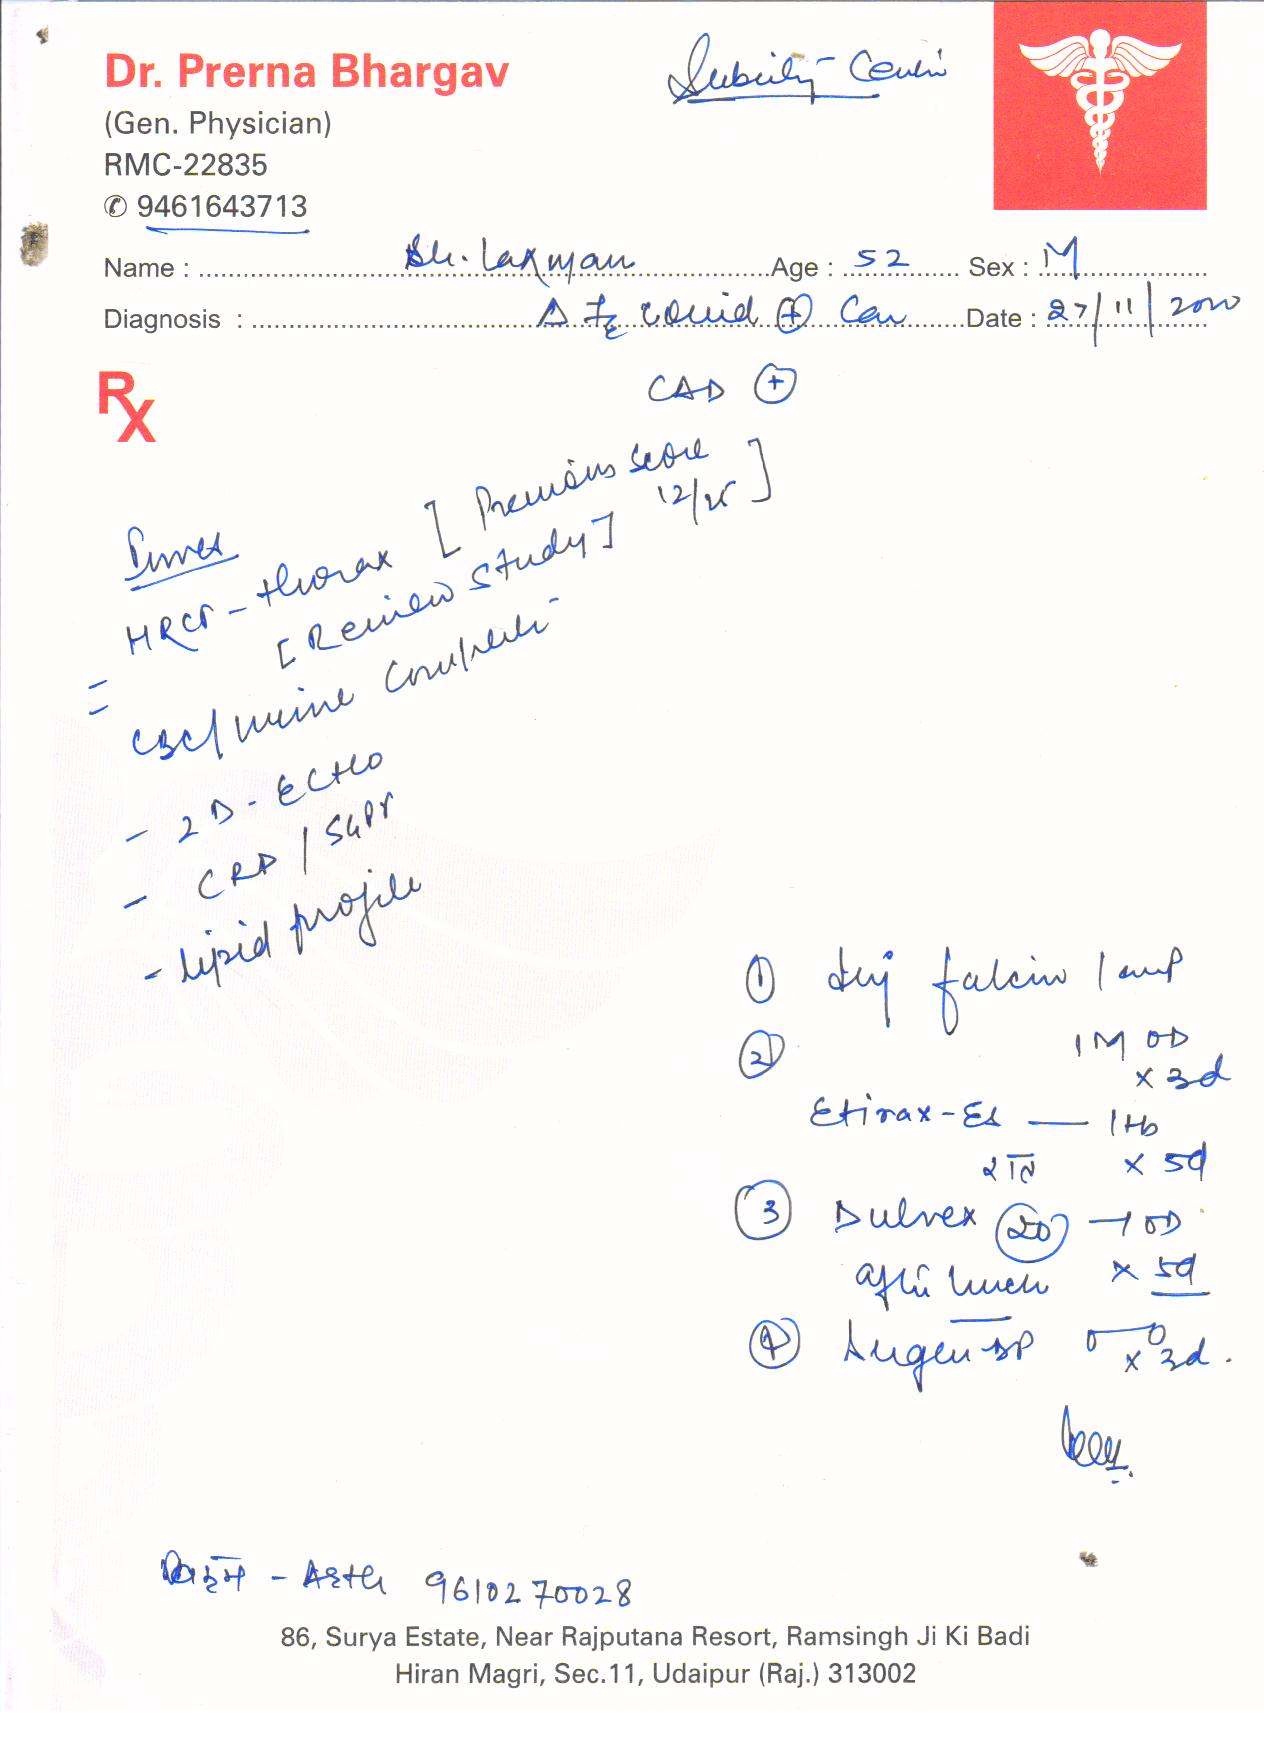 Dr. Prerna Bhargav
(Gen. Physician)
RMC-22835
✆ 9461643713
Name : Sh. Laxman Age : 52 Sex : M
Diagnosis : Δ covid ⊕ Date : 27/11/2020
CAD ⊕
Rx
HRCT - thorax [Previous score 12/25]
[Review study]
CBC/urine
- 2D-ECHO
- CRP / SGPT
- lipid profile
① Inj falcin 1 amp
1M OD
x 3d
②
Etirax-ES — 1 tb
x 5d
③ Dulrex 20 OD
after lunch x 5d
④ Augen-DP x 3d.
9610270028
86, Surya Estate, Near Rajputana Resort, Ramsingh Ji Ki Badi
Hiran Magri, Sec.11, Udaipur (Raj.) 313002